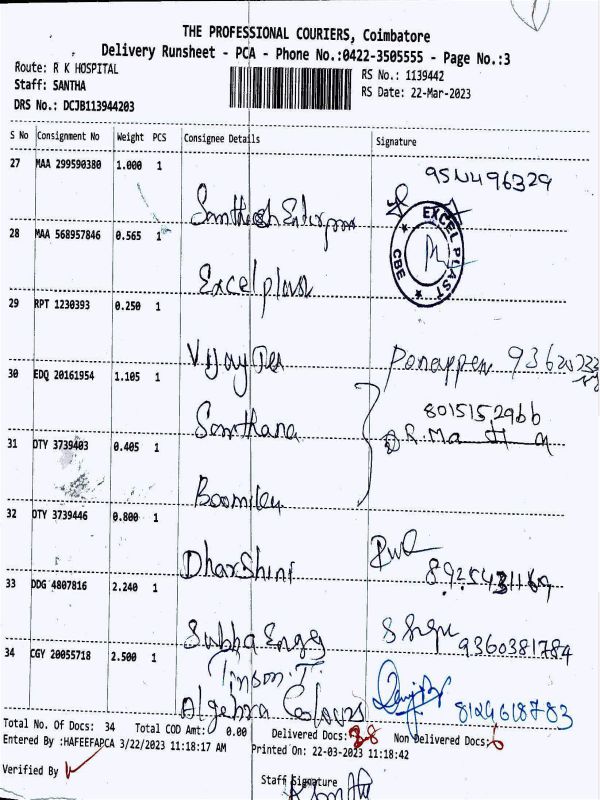 THE PROFESSIONAL COURIERS, Coimbatore
Delivery Runsheet - PCA - Phone No.:0422-3505555 - Page No.:3
Route: R K HOSPITAL
RS No.: 1139442
Staff: SANTHA
RS Date: 22-Mar-2023
DRS No.: DCJB113944203
S No Consignment No Weight PCS Consignee Details Signature
27 MAA 299590380 1.000 1
28 MAA 568957846 0.565 1
EXCEL PLAST CBE
Excel plast
29 RPT 1230393 0.250 1
Vijay Tex
30 EDQ 20161954 1.105 1
8015152966
Santhana
31 DTY 3739403 0.405 1
32 DTY 3739446 0.800 1
Dharshini
8925431169
33 DDG 4807816 2.240 1
Subba Engg
9360381784
34 CGY 20055718 2.500 1
Timson T.
Algebra Colours 8124618783
Total No. Of Docs: 34 Total COD Amt: 0.00 Delivered Docs: 28 Non Delivered Docs: 6
Entered By :HAFEEFAPCA 3/22/2023 11:18:17 AM Printed On: 22-03-2023 11:18:42
Verified By
Staff Signature